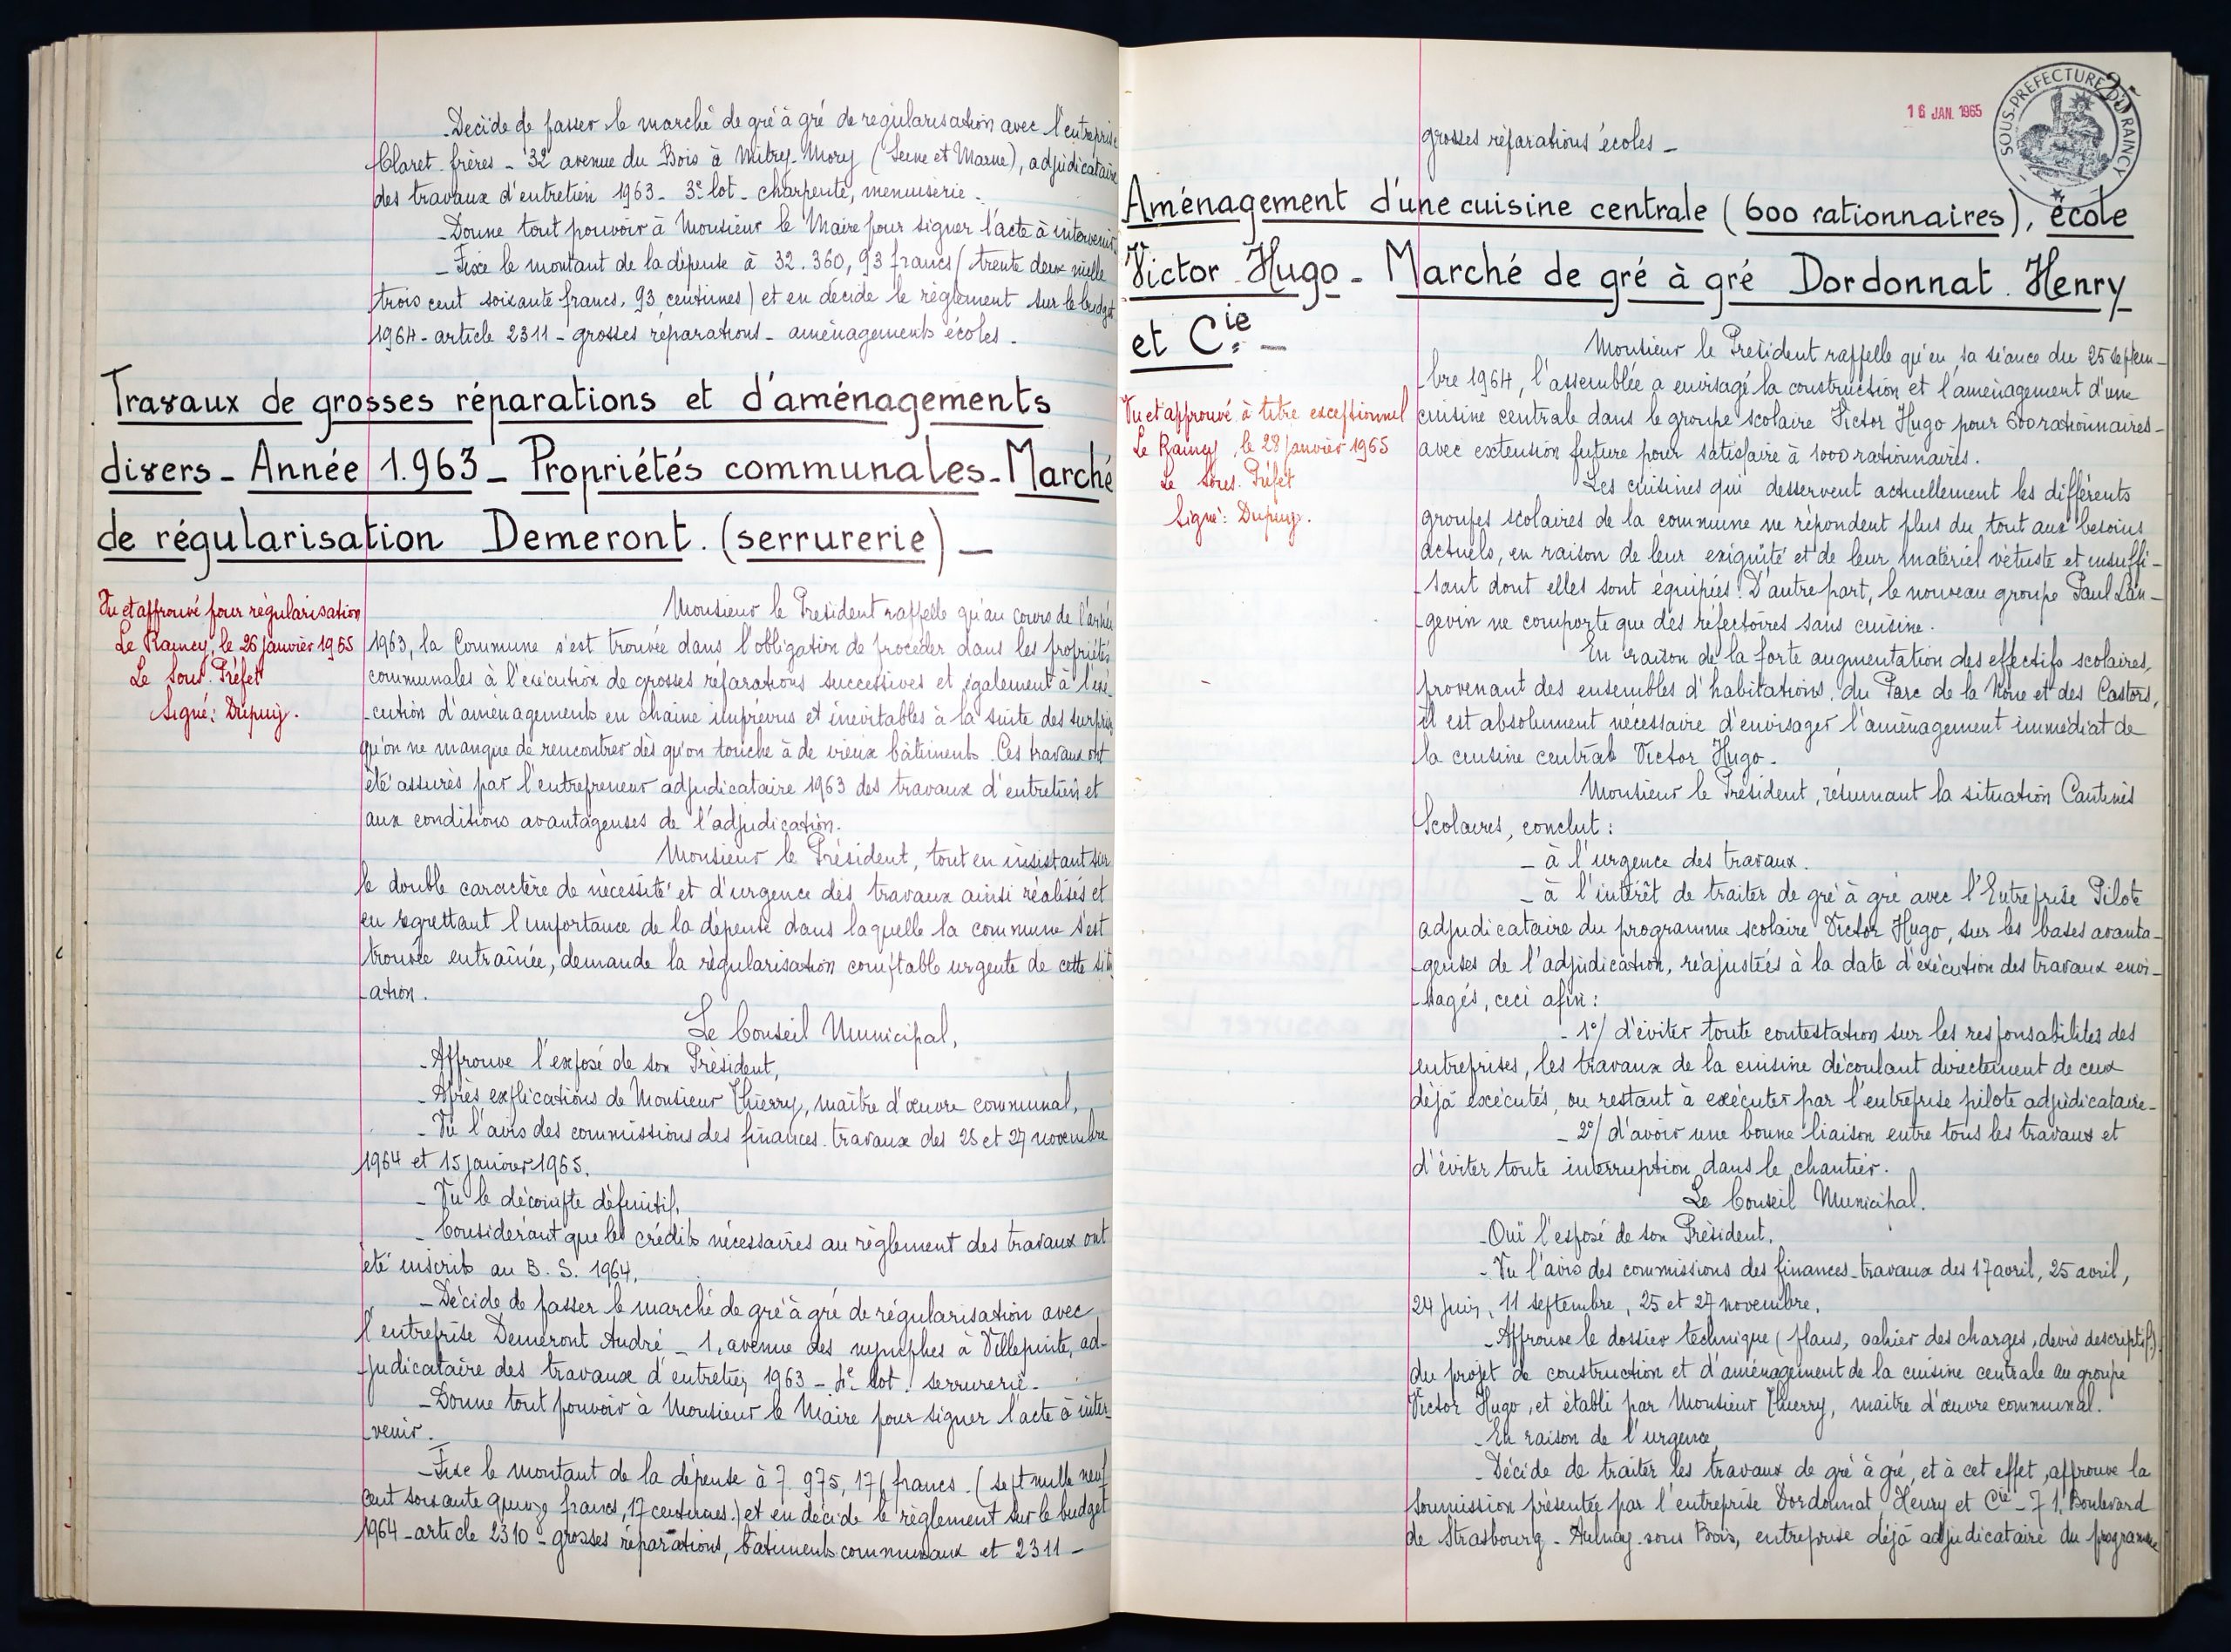 - Décide de passer le marché de gré à gré de régularisation avec l'entreprise
Claret frères - 32 avenue du Bois à Mitry-Mory (Seine et Marne), adjudicataire
des travaux d'entretien 1963 - 3e lot - charpente, menuiserie -
- Donne tout pouvoir à Monsieur le Maire pour signer l'acte à intervenir
- Fixe le montant de la dépense à 32.360,93 francs (trente deux mille
trois cent soixante francs, 93 centimes) et en décide le règlement sur le budget
1964 - article 2311 - grosses réparations - aménagements écoles.
Travaux de grosses réparations et d'aménagements
divers - Année 1.963 - Propriétés communales - Marché
de régularisation Demeront. (serrurerie) -
Vu et approuvé pour régularisation
Le Raincy, le 26 Janvier 1965
Le Sous-Préfet
Signé : Dupuy.
Monsieur le Président rappelle qu'au cours de l'année
1963, la Commune s'est trouvée dans l'obligation de procéder dans les propriétés
communales à l'exécution de grosses réparations successives et également à l'exé-
-cution d'aménagements en chaîne imprévus et inévitables à la suite des surprises
qu'on ne manque de rencontrer dès qu'on touche à de vieux bâtiments. Ces travaux ont
été assurés par l'entrepreneur adjudicataire 1963 des travaux d'entretien et
aux conditions avantageuses de l'adjudication.
Monsieur le Président, tout en insistant sur
le double caractère de nécessité et d'urgence des travaux ainsi réalisés et
en regrettant l'importance de la dépense dans laquelle la commune s'est
trouvée entraînée, demande la régularisation comptable urgente de cette situ
-ation.
Le Conseil Municipal,
- Approuve l'exposé de son Président,
- Après explications de Monsieur Thierry, maître d'œuvre communal,
- Vu l'avis des commissions des finances-travaux des 25 et 27 novembre
1964 et 15 janvier 1965.
- Vu le décompte définitif,
- Considérant que les crédits nécessaires au règlement des travaux ont
été inscrits au B.S. 1964.
- Décide de passer le marché de gré à gré de régularisation avec
l'entreprise Demeront André - 1, avenue des nymphes à Villepinte, ad-
-judicataire des travaux d'entretien 1963 - 4e lot. serrurerie -
- Donne tout pouvoir à Monsieur le Maire pour signer l'acte à inter-
-venir.
- Fixe le montant de la dépense à 7.975,17 francs. (sept mille neuf
cent soixante quinze francs, 17 centimes.) et en décide le règlement sur le budget
1964 - article 2310 - grosses réparations, bâtiments communaux et 2311 -
16 JAN. 1965
SOUS-PREFECTURE DU RAINCY
grosses réparations écoles -
Aménagement d'une cuisine centrale (600 rationnaires), école
Victor Hugo - Marché de gré à gré Dordonnat. Henry
et Cie -
Vu et approuvé à titre exceptionnel
Le Raincy, le 28 Janvier 1965
Le Sous-Préfet
Signé : Dupuy.
Monsieur le Président rappelle qu'en sa séance du 25 septem-
-bre 1964, l'assemblée a envisagé la construction et l'aménagement d'une
cuisine centrale dans le groupe scolaire Victor Hugo pour 600 rationnaires -
avec extension future pour satisfaire à 1000 rationnaires.
Les cuisines qui desservent actuellement les différents
groupes scolaires de la commune ne répondent plus du tout aux besoins
actuels, en raison de leur exiguité et de leur matériel vétuste et insuffi-
-sant dont elles sont équipées. D'autre part, le nouveau groupe Paul Lan-
-gevin ne comporte que des réfectoires sans cuisine.
En raison de la forte augmentation des effectifs scolaires,
provenant des ensembles d'habitations, du Parc de la Noue et des Castors,
il est absolument nécessaire d'envisager l'aménagement immédiat de
la cuisine centrale Victor Hugo.
Monsieur le Président, résumant la situation Cantines
Scolaires, conclut :
- à l'urgence des travaux.
- à l'intérêt de traiter de gré à gré avec l'Entreprise Pilote
adjudicataire du programme scolaire Victor Hugo, sur les bases avanta-
-geuses de l'adjudication, réajustées à la date d'exécution des travaux envi-
-sagés, ceci afin :
- 1°/ d'éviter toute contestation sur les responsabilités des
entreprises, les travaux de la cuisine découlant directement de ceux
déjà exécutés, ou restant à exécuter par l'entreprise pilote adjudicataire -
- 2°/ d'avoir une bonne liaison entre tous les travaux et
d'éviter toute interruption dans le chantier.
Le Conseil Municipal.
- Ouï l'exposé de son Président.
- Vu l'avis des commissions des finances-travaux des 17 avril, 25 avril,
24 juin, 11 septembre, 25 et 27 novembre.
- Approuve le dossier technique (plans, cahier des charges, devis descriptif)
du projet de construction et d'aménagement de la cuisine centrale au groupe
Victor Hugo, et établi par Monsieur Thierry, maître d'œuvre communal.
- En raison de l'urgence
- Décide de traiter les travaux de gré à gré, et à cet effet, approuve la
soumission présentée par l'entreprise Dordonnat Henry et Cie - 71, Boulevard
de Strasbourg - Aulnay-sous-Bois, entreprise déjà adjudicataire du programme